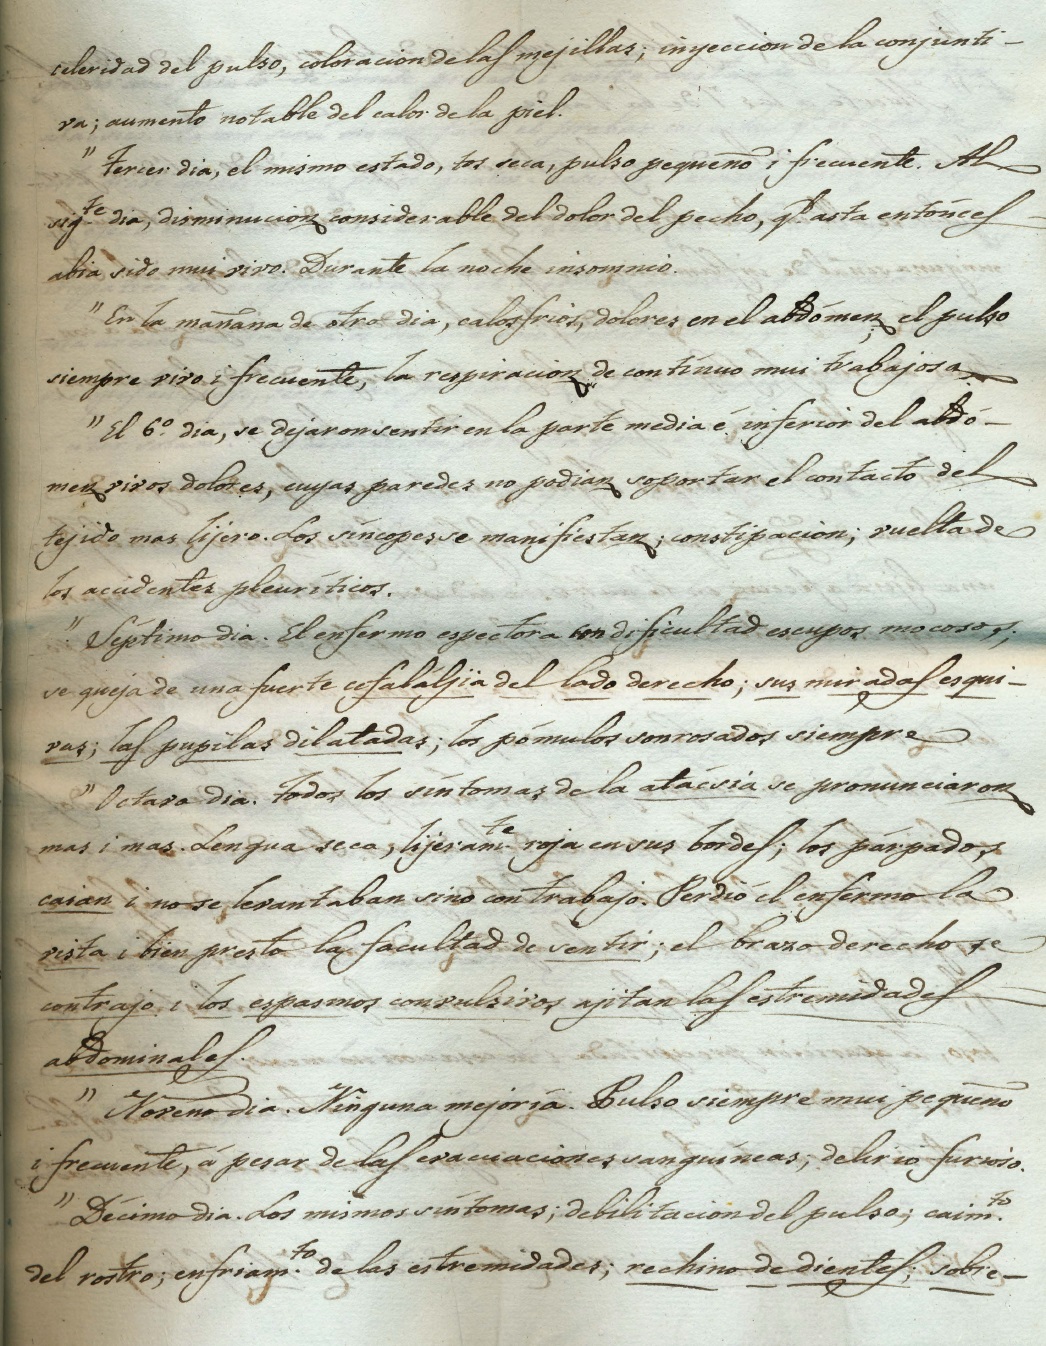 celeridad del pulso, coloracion de las mejillas; inyeccion de la conjunti-
va; aumento notable del calor de la piel.
" Tercer dia, el mismo estado, tos seca, pulso pequeño i frecuente. Al
sigte dia, disminucion considerable del dolor del pecho, qe asta entónces
abia sido mui vivo. Durante la noche insomnio.
" En la mañana de otro dia, calosfrios, dolores en el abdómen, el pulso
siempre vivo i frecuente, la respiracion de contínuo mui trabajosa
" El 6º dia, se dejaron sentir en la parte media é inferior del abdó-
men vivos dolores, cuyas paredes no podian soportar el contacto del
tejido mas lijero. Los síncopes se manifiestan; constipacion; vuelta de
los accidentes pleuríticos.
" Séptimo dia. El enfermo espectora con dificultad escupos mocosos,
se queja de una fuerte cefalaljia del lado derecho; sus miradas esqui-
vas; las pupilas dilatadas; los pómulos sonrosados siempre
" Octavo dia. Todos los síntomas de la atácsia se pronunciaron
mas i mas. Lengua seca, lijeramte roja en sus bordes; los párpados
caian i no se levantaban sino con trabajo. Perdió el enfermo la
vista i bien presto la facultad de sentir; el brazo derecho se
contrajo i los espasmos convulsivos ajitan las estremidades
abdominales.
" Noveno dia. Ninguna mejoría. Pulso siempre mui pequeño
i frecuente, á pesar de las evacuaciones sanguíneas; delirio furioso.
" Décimo dia. Los mismos síntomas; debilitacion del pulso; caimto.
del rostro; enfriamto. de las estremidades; rechino de dientes; sobre-